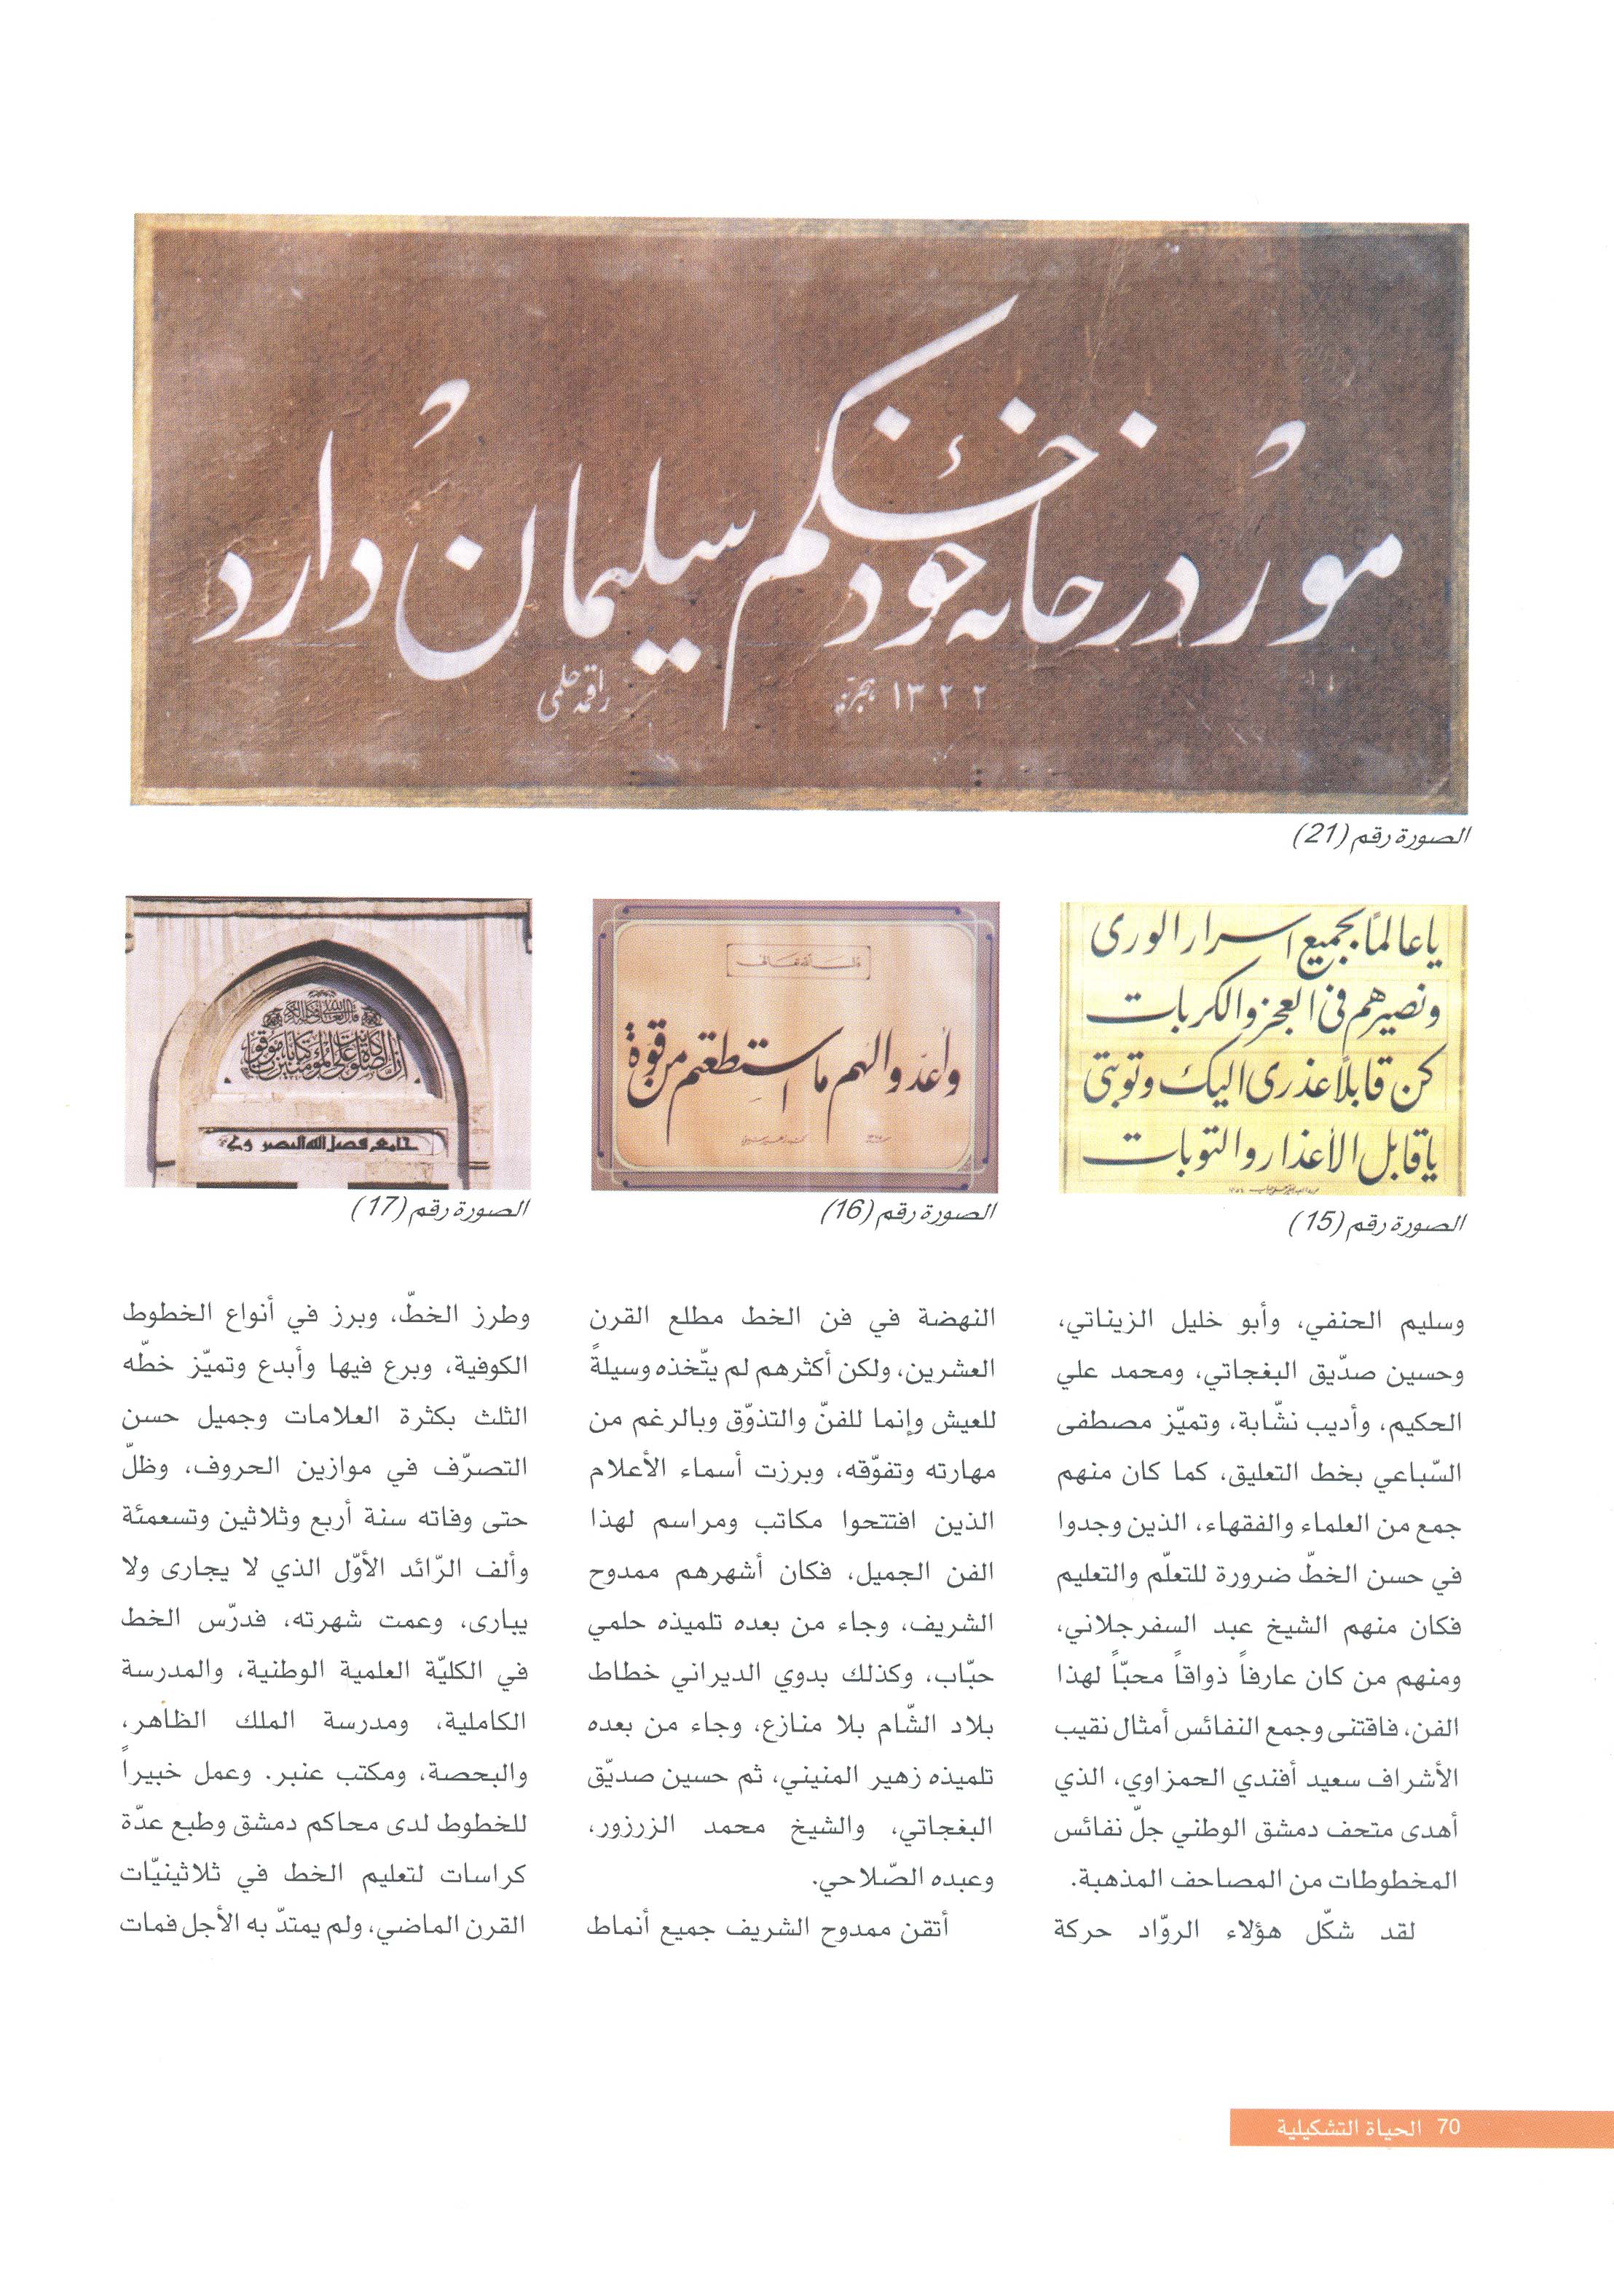 مور در خانه خود حکم سلیمان دارد
١٣٢٢ هجرية
راقمه حلمي
الصورة رقم (21)
يا عالماً بجميع اسرار الورى
ونصيرهم في العجز والكربات
كن قابلاً عذري اليك وتوبتي
يا قابل الأعذار والتوبات
الصورة رقم (15)
قال الله تعالى
وأعدّوا لهم ما استطعتم من قوّة
الصورة رقم (16)
إن الصلاة كانت على المؤمنين كتابا موقوتا
جامع فضل الله البصروي
الصورة رقم (17)
وسليم الحنفي، وأبو خليل الزيناتي،
وحسين صدّيق البغجاتي، ومحمد علي
الحكيم، وأديب نشّابة، وتميّز مصطفى
السّباعي بخط التعليق، كما كان منهم
جمع من العلماء والفقهاء، الذين وجدوا
في حسن الخطّ ضرورة للتعلّم والتعليم
فكان منهم الشيخ عبد السفرجلاني،
ومنهم من كان عارفاً ذواقاً محبّاً لهذا
الفن، فاقتنى وجمع النفائس أمثال نقيب
الأشراف سعيد أفندي الحمزاوي، الذي
أهدى متحف دمشق الوطني جلّ نفائس
المخطوطات من المصاحف المذهبة.
لقد شكّل هؤلاء الروّاد حركة
النهضة في فن الخط مطلع القرن
العشرين، ولكن أكثرهم لم يتّخذه وسيلةً
للعيش وإنما للفنّ والتذوّق وبالرغم من
مهارته وتفوّقه، وبرزت أسماء الأعلام
الذين افتتحوا مكاتب ومراسم لهذا
الفن الجميل، فكان أشهرهم ممدوح
الشريف، وجاء من بعده تلميذه حلمي
حبّاب، وكذلك بدوي الديراني خطاط
بلاد الشّام بلا منازع، وجاء من بعده
تلميذه زهير المنيني، ثم حسين صديّق
البغجاتي، والشيخ محمد الزرزور،
وعبده الصّلاحي.
أتقن ممدوح الشريف جميع أنماط
وطرز الخطّ، وبرز في أنواع الخطوط
الكوفية، وبرع فيها وأبدع وتميّز خطّه
الثلث بكثرة العلامات وجميل حسن
التصرّف في موازين الحروف، وظلّ
حتى وفاته سنة أربع وثلاثين وتسعمئة
وألف الرّائد الأوّل الذي لا يجارى ولا
يبارى، وعمت شهرته، فدرّس الخط
في الكليّة العلمية الوطنية، والمدرسة
الكاملية، ومدرسة الملك الظاهر،
والبحصة، ومكتب عنبر. وعمل خبيراً
للخطوط لدى محاكم دمشق وطبع عدّة
كراسات لتعليم الخط في ثلاثينيّات
القرن الماضي، ولم يمتدّ به الأجل فمات
70 الحياة التشكيلية